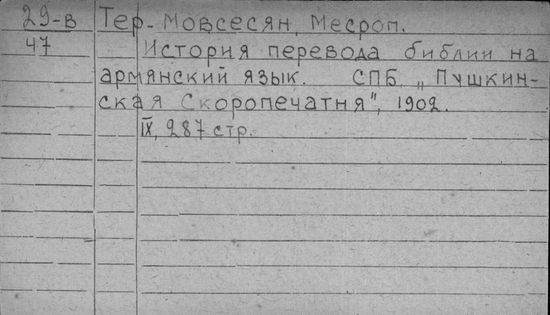 29-в Тер-Мовсесян, Месроп.
47 История перевода библии на
армянский язык. СПБ. „Пушкин-
ская Скоропечатня", 1902.
IX, 287 стр.